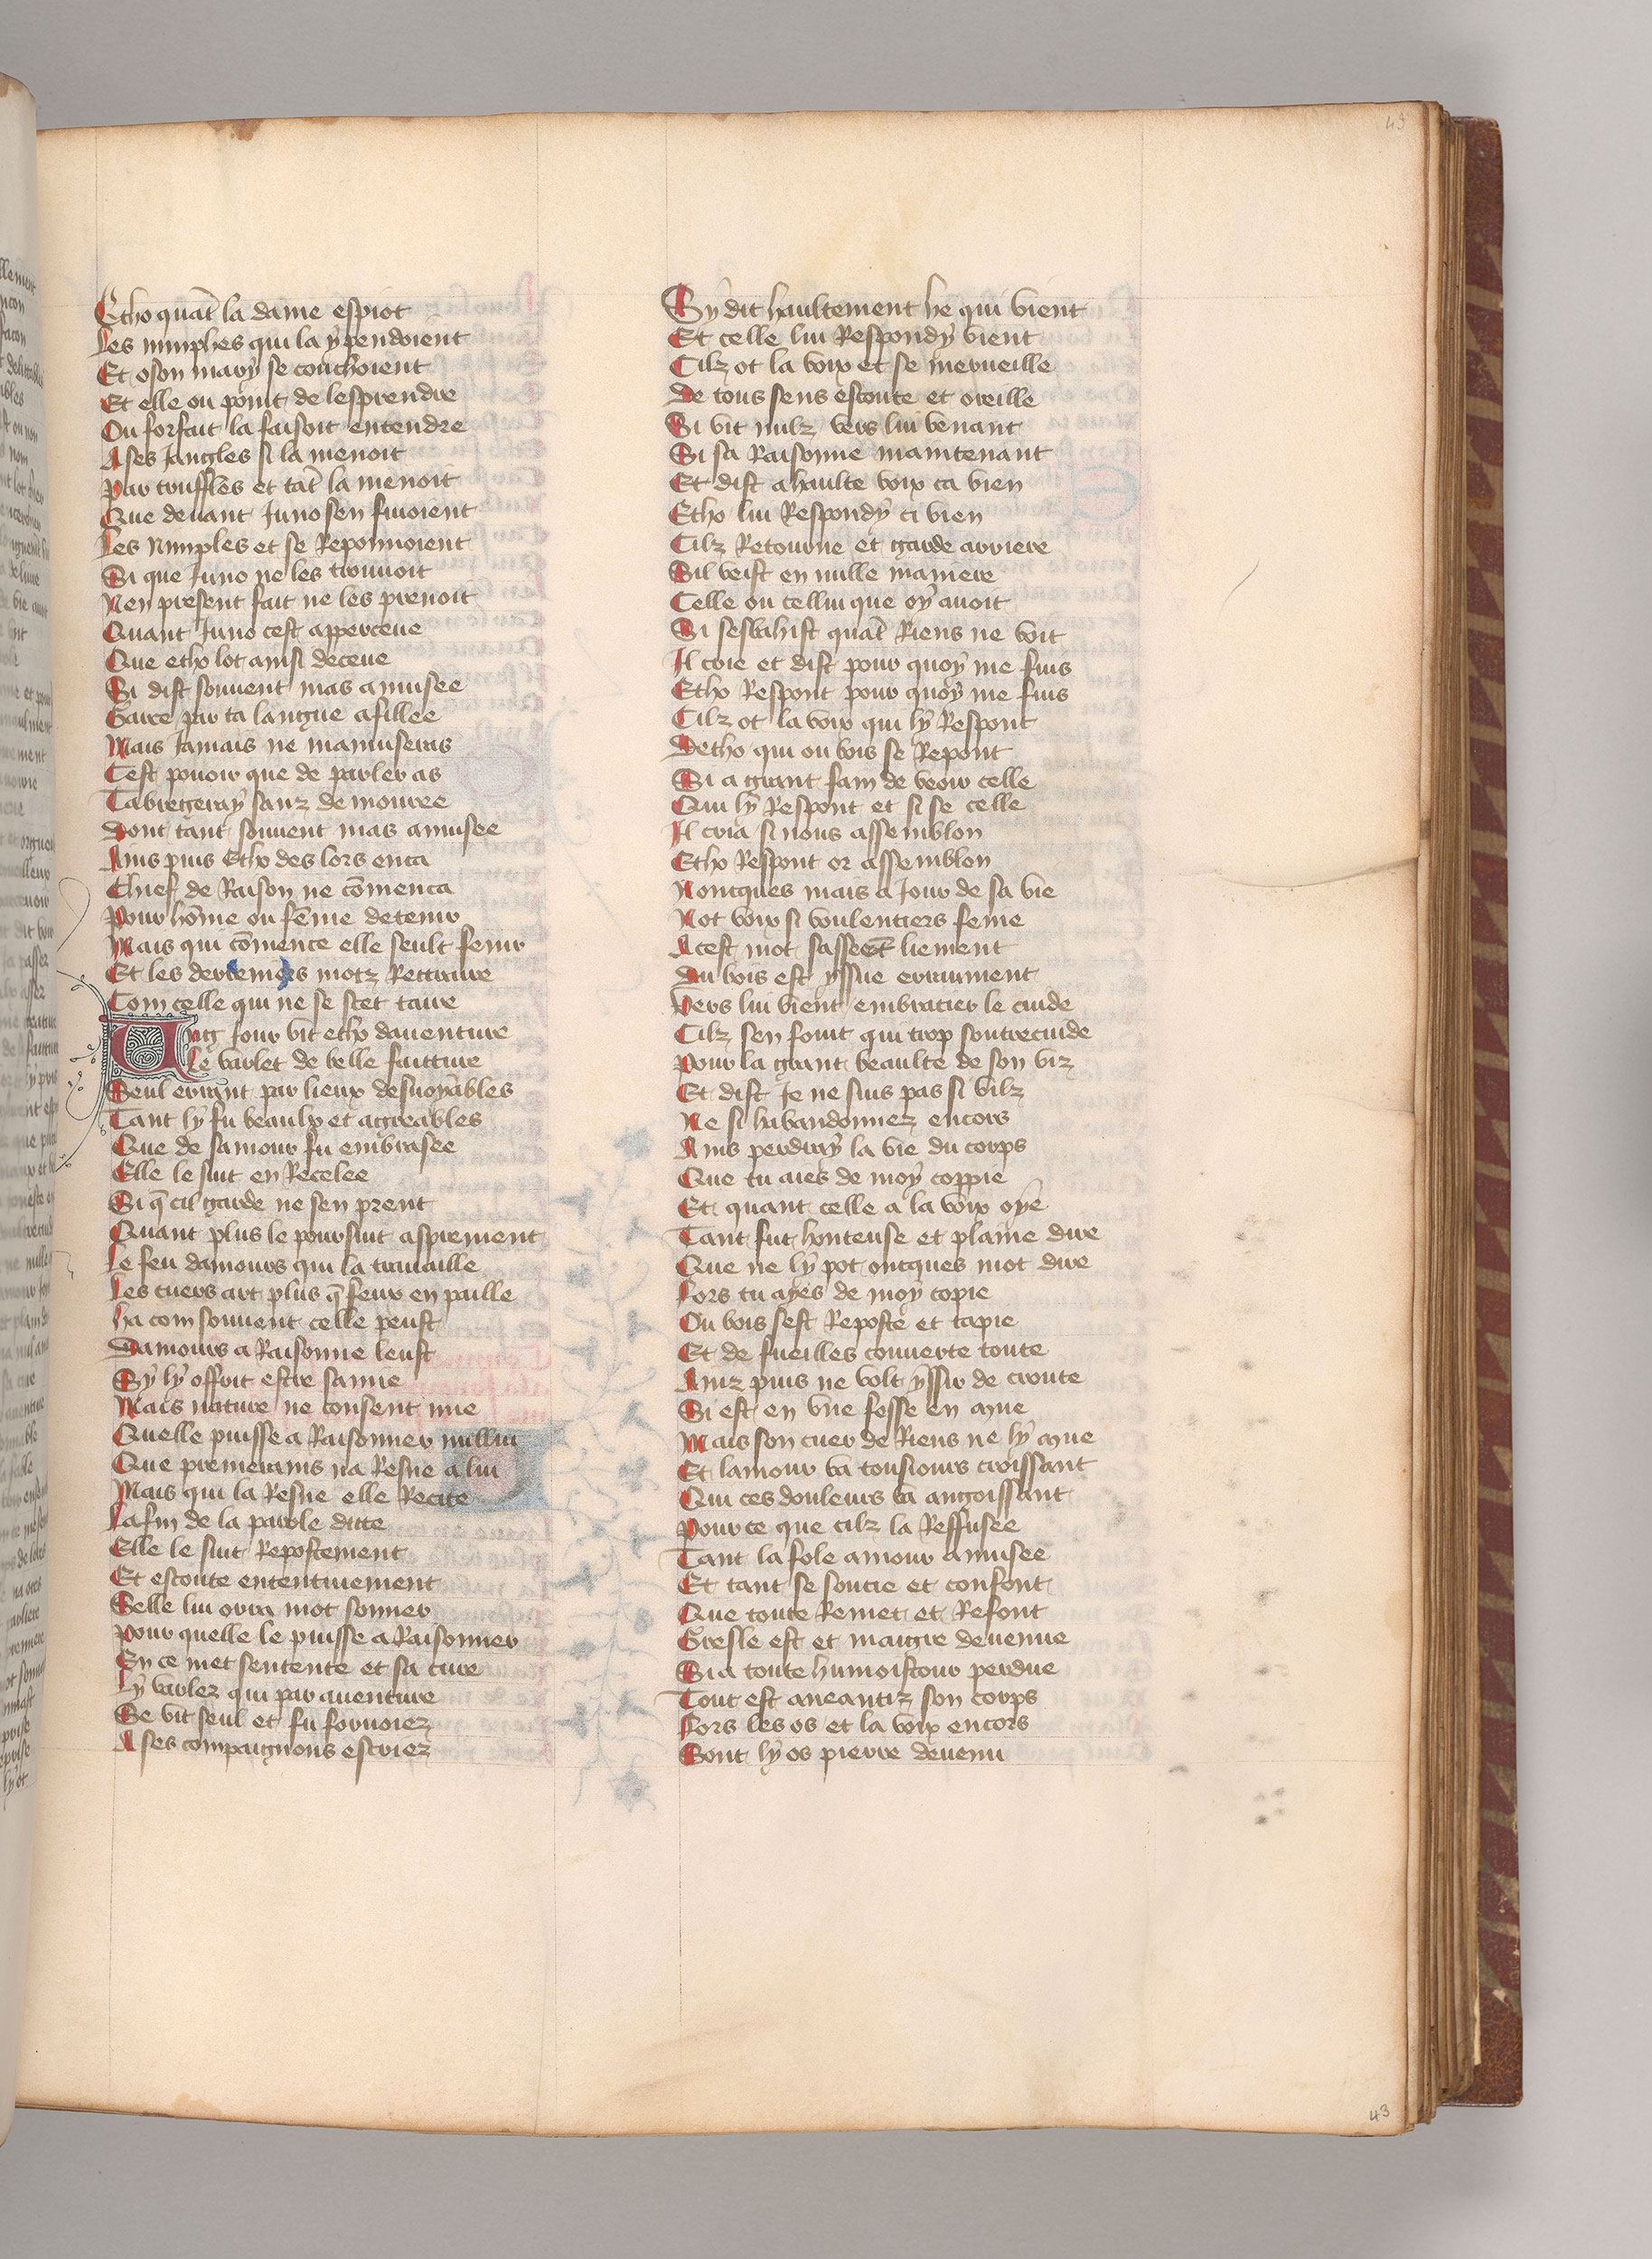 49
Etho quāt la dame espiot
Les nimphes qui la ypendoient
Et oson mary se couchoient
Et elle ou point de lesprendre
Ou forfait la faisoit entendre
Ases Jangles si la menoit
Par truffles et tāt la menoit
Que deuant Juno sen fuioient
Les Nimples et se Reponnoient
Si que Juno ne les trouuoit
Nen present fait ne les prenoit
Quant Juno cest apperceue
Que etho lot ainsi deceue
Si dist souuent mas amusee
Garce par ta langue afillee
Mais Jamais ne mamuseras
Cest pouoir que de parler as
Tabregeray sanz demouree
Dont tant souuent mas amusee
Ains puis Etho des lors enca
Chief de Raison ne cōmenca
Pour hōme ou fēme detenir
Mais qui cōmence elle seult fenir
Et les derreniers motz Retraire
Com celle qui ne se scet taire
Ung Jour vit etho dauenture
Le varlet de belle faitture
Seul errant par lieux desuoyables
Tant ly fu beaulx et aggreables
Que de samour fu embrasee
Elle le suit en Recelee
Si q̄ cil garde ne sen prent
Quant plus le poursuit asprement
Le feu damours qui la trauaille
Les cuers art plus q̄ feur en paille
Ha com souuent celle peust
Damours a Raisonne leust
Sy ly offrit estre samie
Mais nature ne consent mie
Quelle puisse a Raisonner nullui
Que premerains na Resne a lui
Mais qui la Resne elle Recite
Lafin de la parole ditte
Elle le suit Repostement
Et escoute ententiuement
Selle lui orra mot sonner
Pour quelle le puisse a Raisonner
En ce met sentente et sa cure
Ly varlez qui par auenture
Se vit seul et fu foruoiez
A ses compaignons escriez
Sy dit haultement he qui vient
Et celle lui Respondy vient
Cilz ot la voix et se merueille
De tous sens escoute et oreille
Si vit nulz vers lui venant
Si sa Raisonne maintenant
Et dist a haulte voix ca vien
Etho lui Respondy ci vien
Cilz Retourne et garde arriere
Sil veist en nulle maniere
Celle ou cellui que oy auoit
Si sesbahist quāt Riens ne voit
Il crie et dist pour quoy me fuis
Etho Respont pour quoy me fuis
Cilz ot la voix qui ly Respont
Detho qui ou bois se Repont
Si a grant fain de veoir celle
Qui ly Respont et si se celle
Il cria si nous assemblon
Etho Respont or assemblon
Noncques mais a Jour de sa vie
Not voix si voulentiers feme
Acest mot sassent liement
Du bois est yssue erraument
Vers lui vient embracier le cuide
Cilz sen fouit qui trop soutrecuide
Pour la grant beaulte de son viz
Et dist Je ne suis pas si vilz
Ne si habandonnez encors
Ains perdray la vie du corps
Que tu aies de moy coppie
Et quant celle a la voix oye
Tant fut honteuse et plaine dire
Que ne ly pot oncques mot dire
Fors tu ayes de moy copie
Ou bois sest Reposte et tapie
Et de fueilles couuerte toute
Ainz puis ne volt yssir de croute
Si est en vne fosse en mue
Mais son cuer de Riens ne ly mue
Et lamour va tousiours croissant
Qui ces douleurs va angoissant
Pour ce que cilz la Reffusee
Tant la fole amour amusee
Et tant se soucie et confont
Que toute Remet et Refont
Gresle est et maigre deuenue
Si a toute humoistour perdue
Tout est aneantiz son corps
Fors les os et la voix encors
Sont ly os pierre deuenu
43